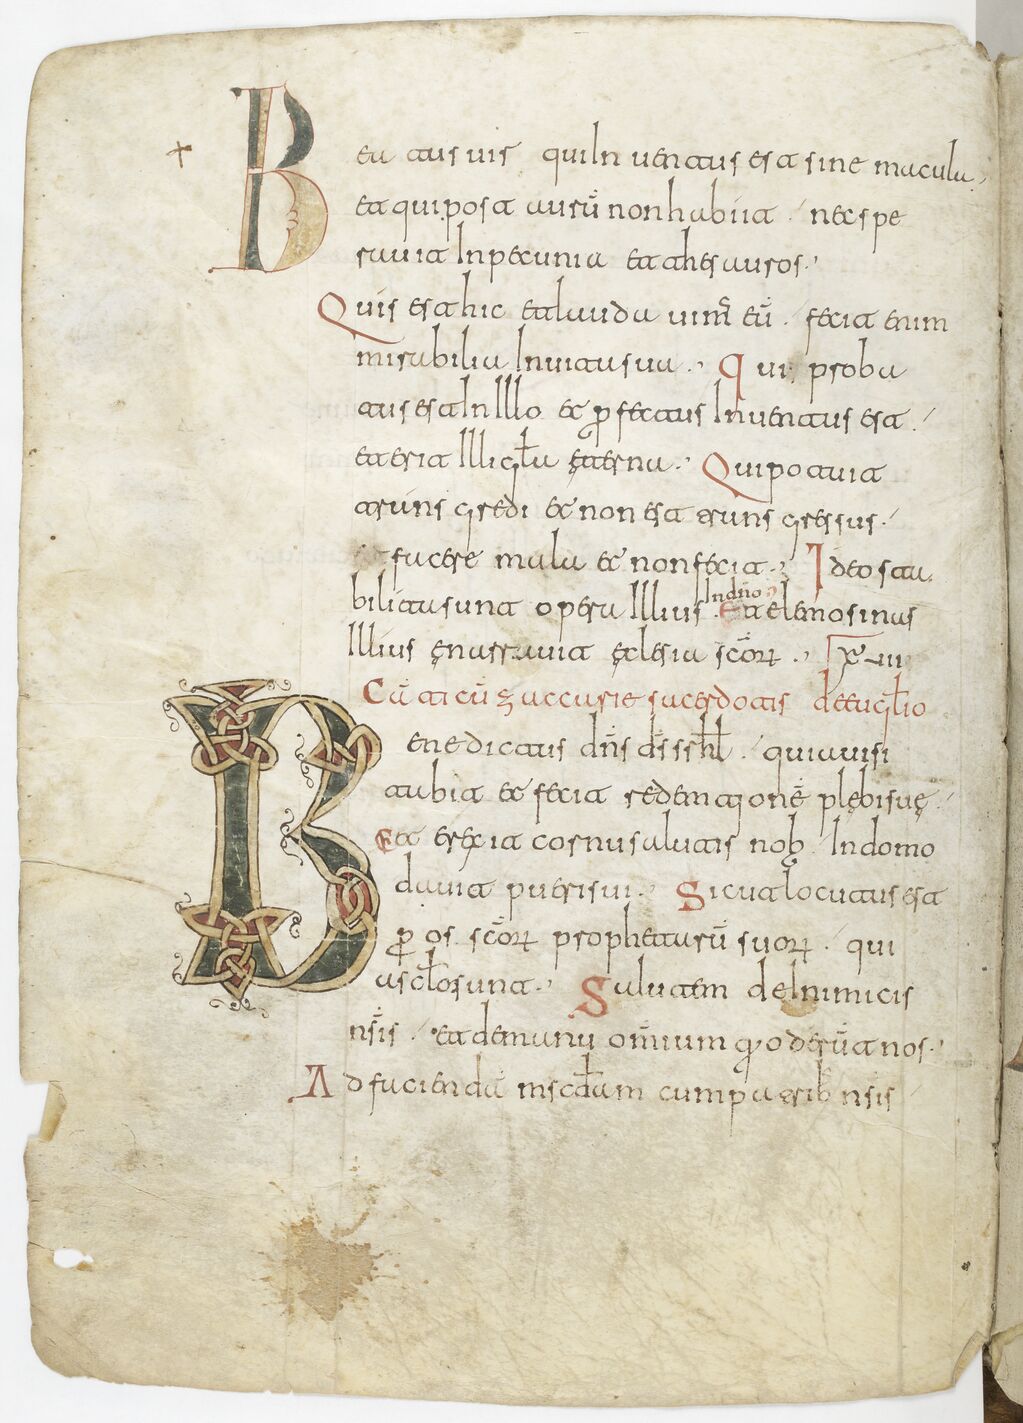 Beatus uir qui Inuentus est sine macula
et qui post aurū non habiit. nec spe
rauit In pecunia et thesauros.
Quis est hic et lauda uim̄ eū. fecit enim
mirabilia In uita sua. Qui proba
tus est In Illo et ꝑfectus Inuentus est.
et erit Illi gl̄a ęterna. Qui potuit
trans gredi et non est trans gressus.
facere mala et non fecit. Ideo sta
bilita sunt opera Illius In dn̄o Et elemosinas
Illius ęnarrauit ęclesia scōrꝝ.
Cāticū zaccarie sacerdotis de eugl̄io
Benedictus dn̄s ds̄ sr̄hl. quia uisi
tabit et fecit redemtjonē plębis suę.
Et erexit cornu salutis nob̄. In domo
dauit pueri sui. Sicut locutus est
ꝑ os scōrꝝ prophetarū suorꝝ. qui
a sc̄lo sunt. Salutem de Inimicis
nr̄is. et de manu om̄ium qi oderūt nos.
Ad faciendā mscd̄iam cum patrib; nr̄is